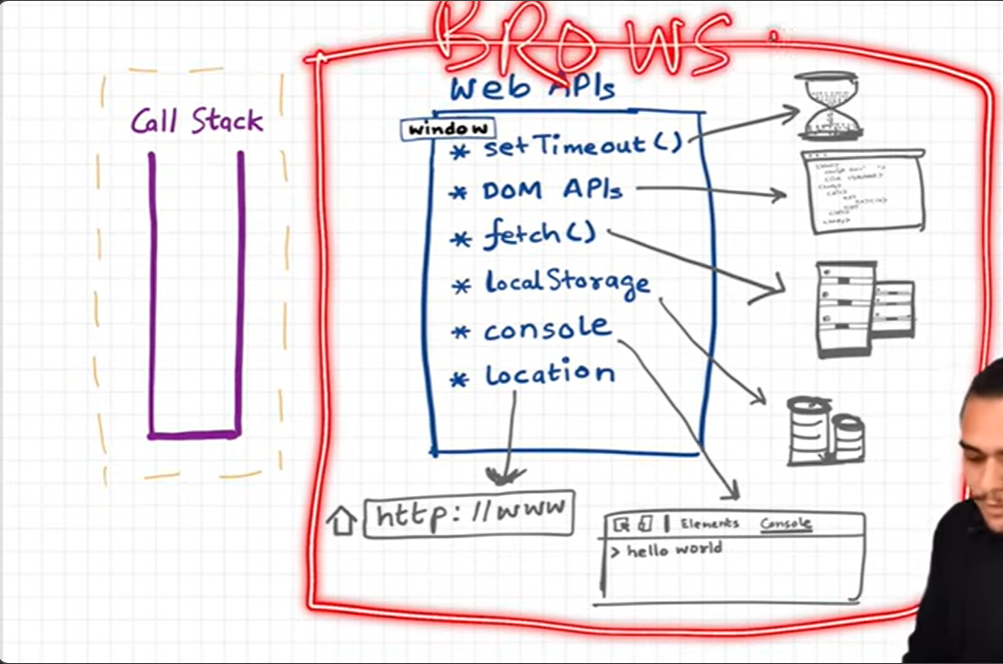 BROWS
Call Stack
Web APIs
window
* setTimeout()
* DOM APIs
* fetch()
* localStorage
* console
* location
http://www
Elements Console
> hello world